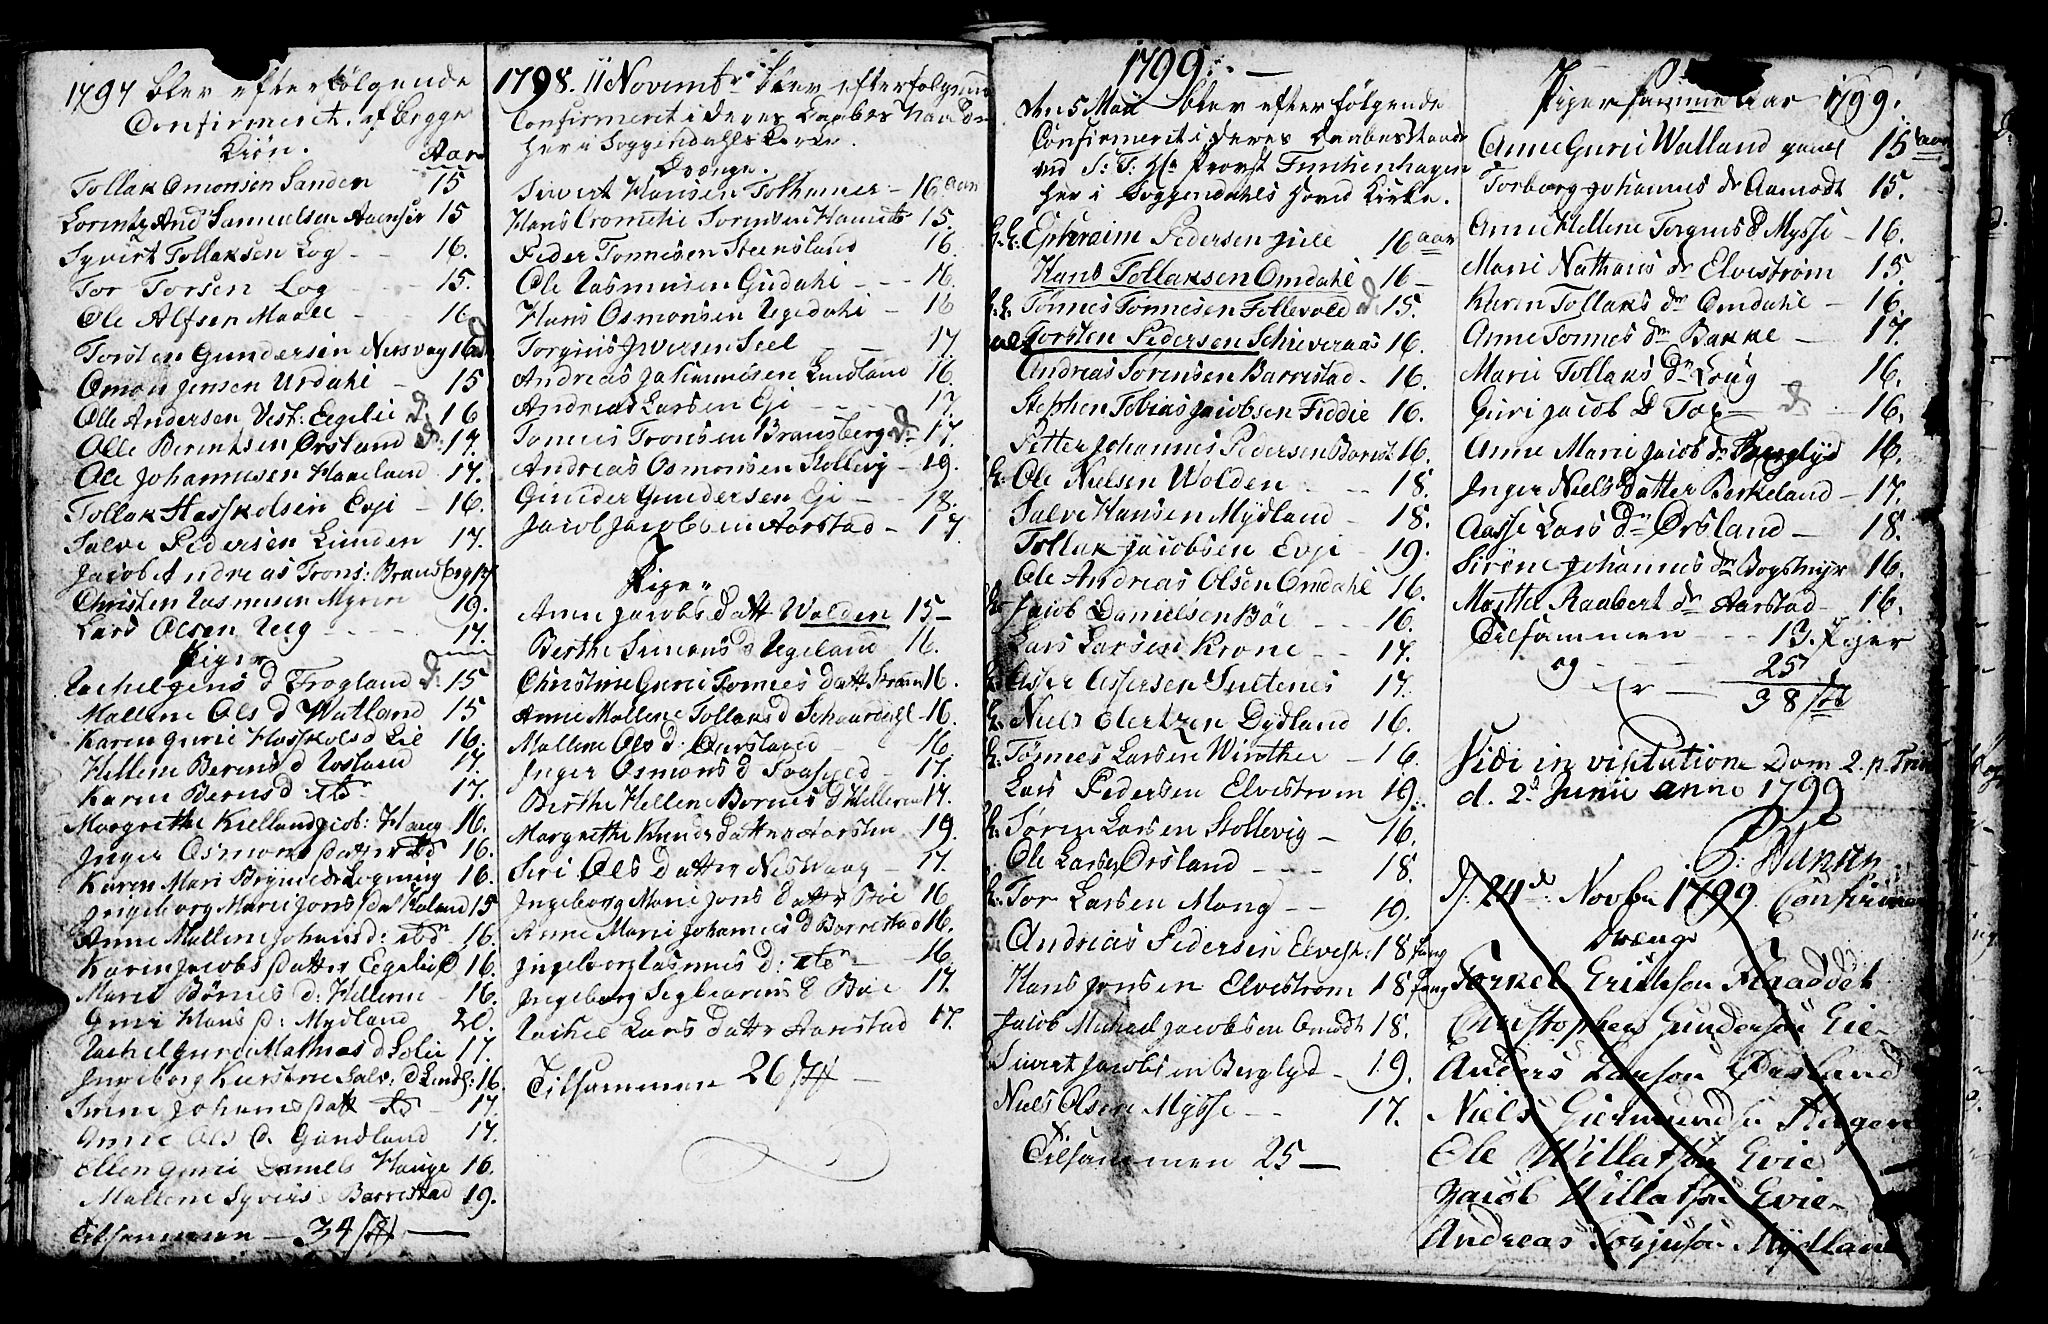 1797 blev efterfølgende
Confirmeret af begge
Kiøn.
Aar
Tollak Omonsen Sanden 15
Lorentz And Samuelsen Aaenser 15
Syvert Tollaksen Log - - 16.
Tor Torsen Log - - 15.
Ole Alfsen Maale - - 16
Torsten Gundersen Nesvog 16
Omon Jensen Urdahl - 15
Olle Andersen Vest: Eegelie d: 16
Olle Berentsen Ørsland d: 17.
Ole Johannesen Haaeland 17.
Tollak Hasskolsen Evji - 16.
Salve Pedersen Lunden 17.
Jacob Andreas Trons: Bransberg 17
Christen Rasmusen Myren 19.
Lars Olsen Ueg - - - 17.
Piger
Rachel Jens d Frogland d: 15
Mallene Ols d Watland 15
Karen Gurie Hasskols d Lie 16.
Hellene Berens d Rosland 17.
Karen Berns d: ibd 17.
Margrethe Kielland Jacob: Haug 16.
Inger Osmons datter ibd 16.
Karen Mari Børgine d Legning 16.
Ingeborg Marie Jons dat Høland 15
Anne Mallene Johans d: ibd 16.
Karen Jacobs datter Eegelie 16.
Maren Børnes d: Hellerne - 16.
Guri Hans d: Mydland 20.
Rachel Guri Mathias d Lolie 17.
Ingeborg Kierstine Salv: d Lindh: 16.
Johanes datt ibd - 17.
Anne Ols d. Gandland 17.
Ellen Guri Daniels Hauge 16.
Mallene Syverts Barrestad 19.
Tilsammen - 34 st

1798. 11 Novembr blev efterfølgende
Confirmeret i deres Daabes Naade
her i Soggendahls Kirke.
Drænge.
Sivert Hansen Tothamer - 16 aar
Hans Crometie Sørensen Hamits 15.
Peder Tønnesen Steensland 16.
Ole Rasmusen Gudahl - - - 16.
Hans Osmonsen Regedahl - 16
Torgius Iversen Seel - - 17
Andreas Johannesen Lundland 16.
Andreas Larsen Eje - - - 17.
Tønnes Tronsen Bransberg d: 17.
Andreas Osmonsen Stollevig - 19.
Gunder Gundersen Eje - - 18.
Jacob Jacobsen Aarstad - 17.
Piger
Ane Jacobs datt Wolden 15 -
Berthe Simons d Ugeland 16.
Christine Gurie Tonnes datt Strømm 16.
Anne Mallene Tollaks d Schaardahl - 16.
Mallene Ols d: Ørsland - 16.
Inger Osmons d - 17.
Berthe Hellene Bornes d Hellerne 17.
Margrethe Knuds datter Aarsten 19.
Siri Ols datter Neswaag - 17.
Ingeborg Marie Jons datt Bøe 16
Anne Marie Johannes d Barrestad 16.
Ingeborg Rasmus d: ibd - 16.
Ingeborg Segbiørns d Bøe 17.
Rachel Lars datter Aarstad 17.
Tilsammen 26 st -

1799. -
den 5 Maii blev efterfølgende
Confirmeret i deres Daabes Naade
ved S: T: Hr Provst Finchenhagen
her i Soggendahls Hoved Kirke.
Ephraim Pedersen Jule 16 aar
Hans Tollaksen Omdahl 16 -
Tønnes Tønnesen Follevold d: 15.
Torsten Pedersen Schieveraas 16.
Andreas Sørensen Barrestad - 16.
Stephen Tobias Jacobsen Fiddie 16.
Petter Johannes Pedersen Barest 16.
Ole Nielsen Wolden - - 18.
Salve Hansen Mydland - 18.
Tollak Jacobsen Evji - 19.
Ole Andreas Olsen Omdahl 16.
Jacob Danielsen Bøe - - 16.
Lars Larsen Krone - - 17.
Asser Assersen Suttenes 17.
Niels Olertzen Dydland 16.
Tønnes Larsen Wirother - 16.
Lars Pedersen Elvestrøm 19.
Søren Larsen Stollevig - 16.
Ole Larsen Ørsland - - - 18.
Tor Larsen Mong - - 19.
Andreas Pedersen Elvestr: 18 fang
Hans Jensen Elvestrøm 18 fang
Jacob Michael Jacobsen Omdt 18.
Sivert Jacobsen Berglyd - 19.
Niels Olsen Mysse - - 17.
Tilsammen 25 -

Piger samme Aar 1799.
Anne Gurie Watland gaml 15 aar
Torborg Johannes dr Aamodt 15.
Anne Hellene Torgius d Mysse - 16.
Marie Nathanis dr Elvestrøm 15.
Karen Tollaks dr Omdahl - 16.
Anne Tonnes dr Bakke - 17.
Marie Tollaks dr Loug 16.
Guri Jacob D Tox - d: 16.
Anne Marie Jacob dr Berglyd 16.
Inger Niels Datter Berkeland - 17.
Aasse Lars dr Ørsland - 18.
Sirene Johannes dr Bogstmyr 16.
Marthe Raabert dr Aarstad - 16.
Tilsammen - - 13. Piger
og - - - 25
er - 38 st
Vidi in visitatione Dom 2. p. Trin
d. 2d Junii anno 1799
P: Hansen
D: 24de Novbr 1799 Confirm
Drænge
Torkel Erickson Flaaddet
Christopher Gunderson Eie -
Anders Larson Ørsland
Niels Giermundsn Hegen
Ole Willatson Evie
Jacob Willatson Evie -
Andreas Torjuson Mydland